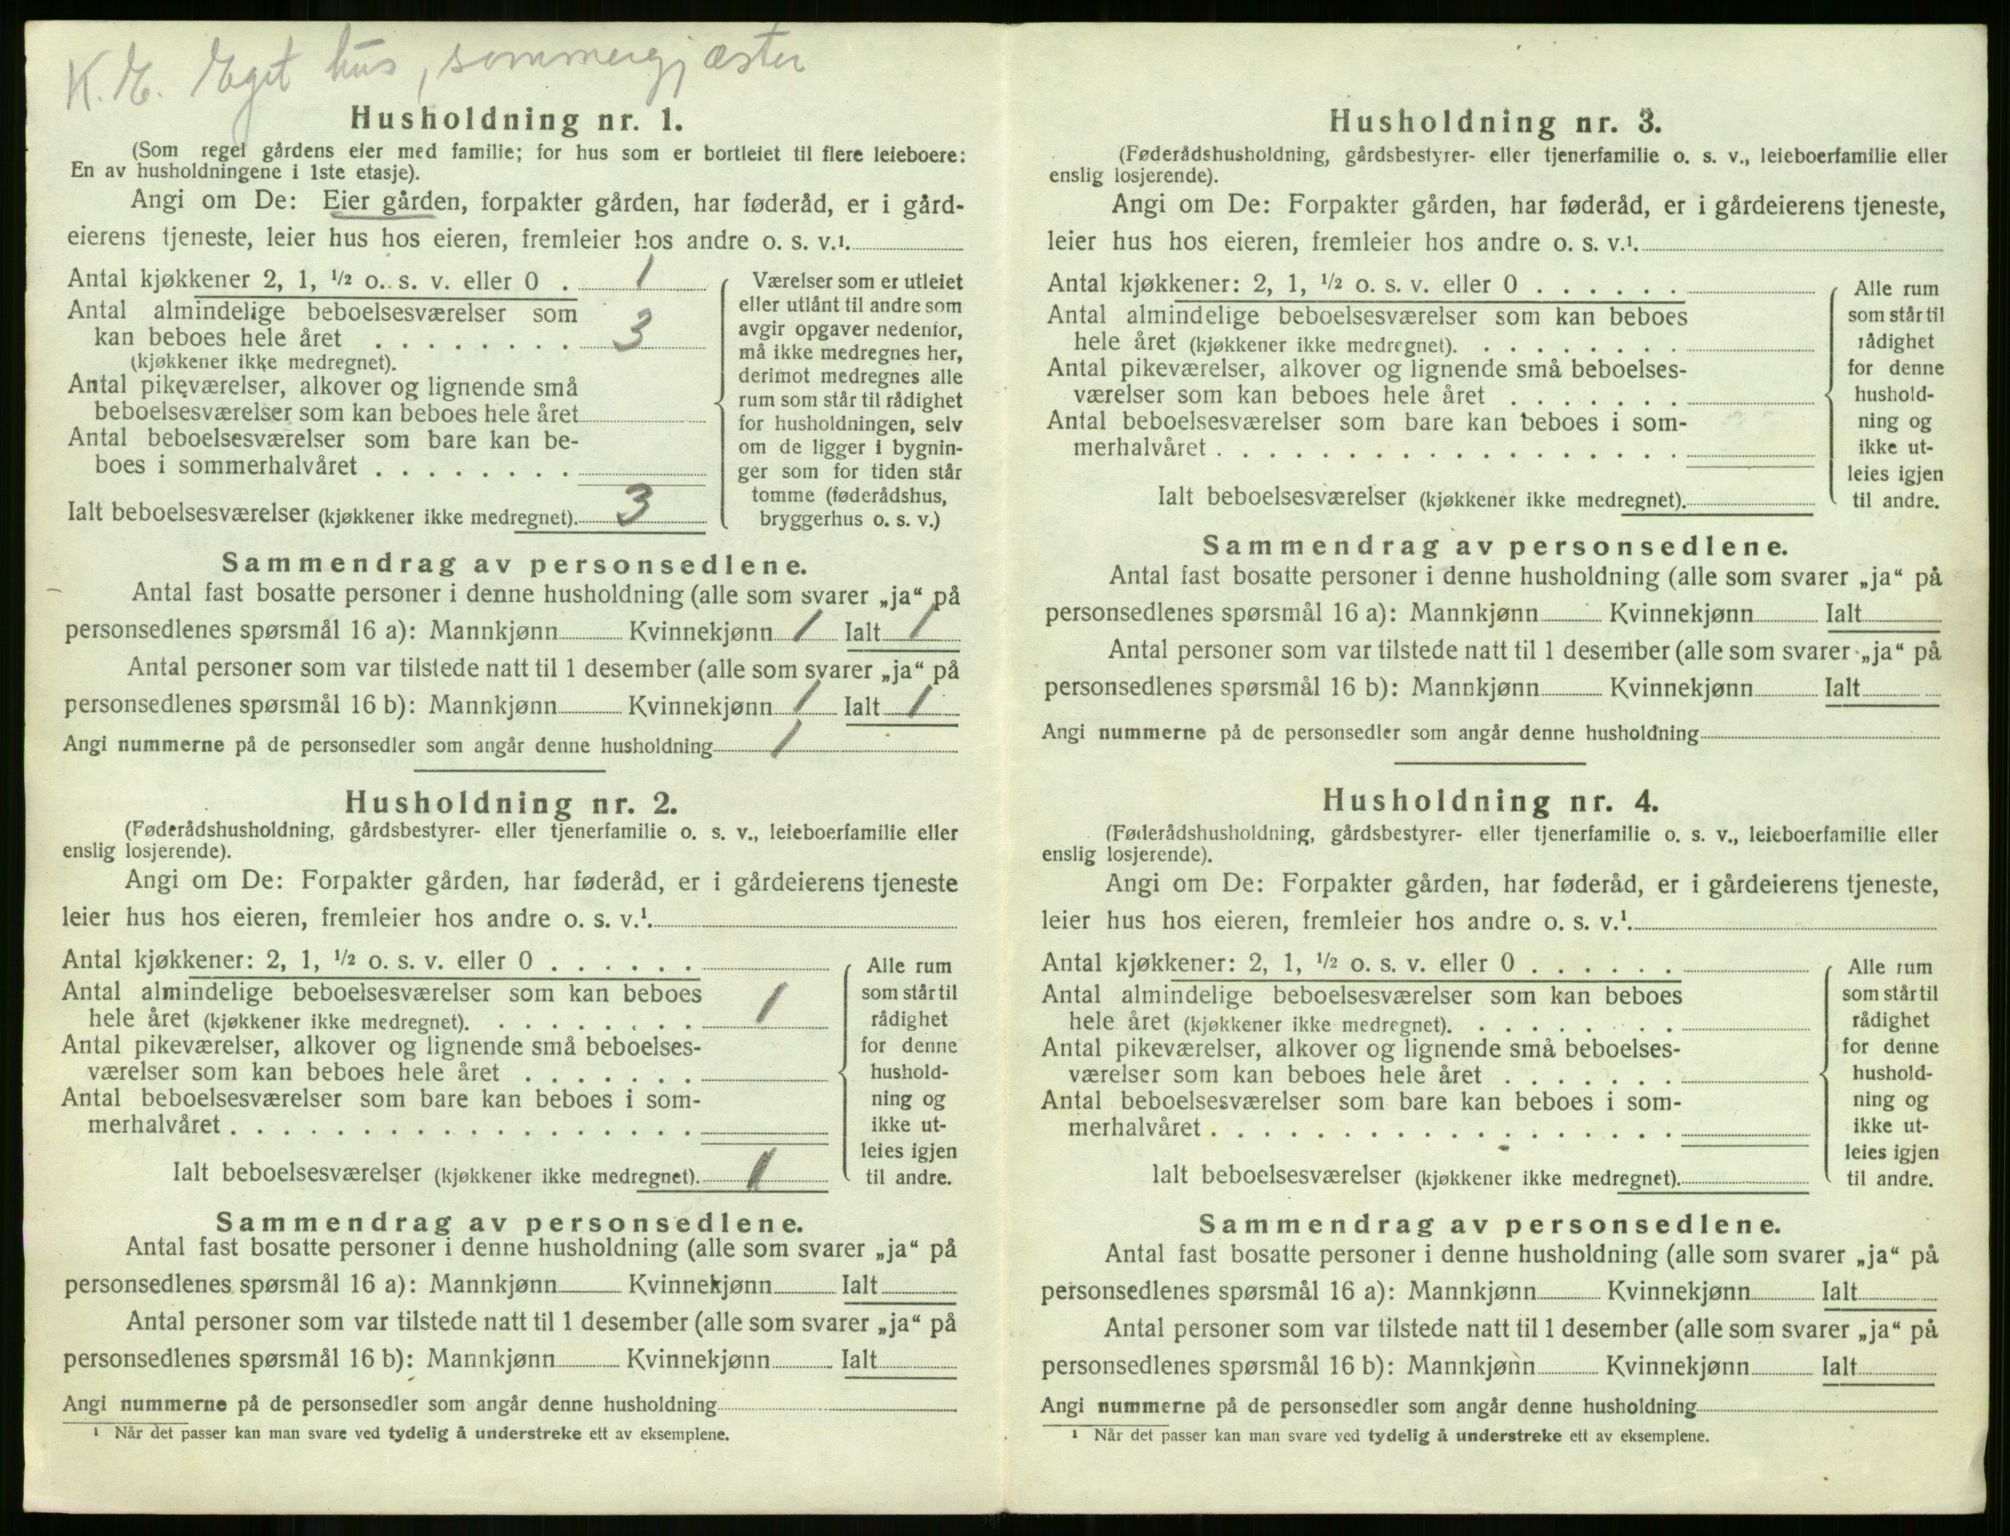 K. E. Eget hus, sommergjæster
Husholdning nr. 1.
(Som regel gårdens eier med familie; for hus som er bortleiet til flere leieboere:
En av husholdningene i 1ste etasje).
Angi om De: Eier gården, forpakter gården, har føderåd, er i gård-
eierens tjeneste, leier hus hos eieren, fremleier hos andre o. s. v.¹.
Antal kjøkkener 2, 1, ½ o. s. v. eller 0 . 1
Antal almindelige beboelsesværelser som
kan beboes hele året . . . . . . . . 3
(kjøkkener ikke medregnet).
Antal pikeværelser, alkover og lignende små
beboelsesværelser som kan beboes hele året
Antal beboelsesværelser som bare kan be-
boes i sommerhalvåret . . . . . . . .
Ialt beboelsesværelser (kjøkkener ikke medregnet). 3
Værelser som er utleiet
eller utlånt til andre som
avgir opgaver nedenfor,
må ikke medregnes her,
derimot medregnes alle
rum som står til rådighet
for husholdningen, selv
om de ligger i bygnin-
ger som for tiden står
tomme (føderådshus,
bryggerhus o. s. v.)
Sammendrag av personsedlene.
Antal fast bosatte personer i denne husholdning (alle som svarer „ja“ på
personsedlenes spørsmål 16 a): Mannkjønn Kvinnekjønn 1 Ialt 1
Antal personer som var tilstede natt til 1 desember (alle som svarer „ja“ på
personsedlenes spørsmål 16 b): Mannkjønn Kvinnekjønn 1 Ialt 1
Angi nummerne på de personsedler som angår denne husholdning 1
Husholdning nr. 2.
(Føderådshusholdning, gårdsbestyrer- eller tjenerfamilie o. s. v., leieboerfamilie eller
enslig losjerende).
Angi om De: Forpakter gården, har føderåd, er i gårdeierens tjeneste
leier hus hos eieren, fremleier hos andre o. s. v.¹.
Antal kjøkkener: 2, 1, ½ o. s. v. eller 0 . . . . . .
Antal almindelige beboelsesværelser som kan beboes
hele året (kjøkkener ikke medregnet). . . . . . . . . 1
Antal pikeværelser, alkover og lignende små beboelses-
værelser som kan beboes hele året . . . . . . .
Antal beboelsesværelser som bare kan beboes i som-
merhalvåret . . . . . . . . . . . . . . . . . .
Ialt beboelsesværelser (kjøkkener ikke medregnet). 1
Alle rum
som står til
rådighet
for denne
hushold-
ning og
ikke ut-
leies igjen
til andre.
Sammendrag av personsedlene.
Antal fast bosatte personer i denne husholdning (alle som svarer „ja“ på
personsedlenes spørsmål 16 a): Mannkjønn Kvinnekjønn Ialt
Antal personer som var tilstede natt til 1 desember (alle som svarer „ja“ på
personsedlenes spørsmål 16 b): Mannkjønn Kvinnekjønn Ialt
Angi nummerne på de personsedler som angår denne husholdning
¹ Når det passer kan man svare ved tydelig å understreke ett av eksemplene.
Husholdning nr. 3.
(Føderådshusholdning, gårdsbestyrer- eller tjenerfamilie o. s. v., leieboerfamilie eller
enslig losjerende).
Angi om De: Forpakter gården, har føderåd, er i gårdeierens tjeneste,
leier hus hos eieren, fremleier hos andre o. s. v.¹.
Antal kjøkkener: 2, 1, ½ o. s. v. eller 0 . . . . . .
Antal almindelige beboelsesværelser som kan beboes
hele året (kjøkkener ikke medregnet). . . . . . . . .
Antal pikeværelser, alkover og lignende små beboelses-
værelser som kan beboes hele året . . . . . . .
Antal beboelsesværelser som bare kan beboes i som-
merhalvåret . . . . . . . . . . . . . . . . . .
Ialt beboelsesværelser (kjøkkener ikke medregnet).
Alle rum
som står til
rådighet
for denne
hushold-
ning og
ikke ut-
leies igjen
til andre.
Sammendrag av personsedlene.
Antal fast bosatte personer i denne husholdning (alle som svarer „ja“ på
personsedlenes spørsmål 16 a): Mannkjønn Kvinnekjønn Ialt
Antal personer som var tilstede natt til 1 desember (alle som svarer „ja“ på
personsedlenes spørsmål 16 b): Mannkjønn Kvinnekjønn Ialt
Angi nummerne på de personsedler som angår denne husholdning
Husholdning nr. 4.
(Føderådshusholdning, gårdsbestyrer- eller tjenerfamilie o. s. v., leieboerfamilie eller
enslig losjerende).
Angi om De: Forpakter gården, har føderåd, er i gårdeierens tjeneste,
leier hus hos eieren, fremleier hos andre o. s. v.¹.
Antal kjøkkener: 2, 1, ½ o. s. v. eller 0 . . . . . .
Antal almindelige beboelsesværelser som kan beboes
hele året (kjøkkener ikke medregnet). . . . . . . . .
Antal pikeværelser, alkover og lignende små beboelses-
værelser som kan beboes hele året . . . . . . .
Antal beboelsesværelser som bare kan beboes i som-
merhalvåret . . . . . . . . . . . . . . . . . .
Ialt beboelsesværelser (kjøkkener ikke medregnet).
Alle rum
som står til
rådighet
for denne
hushold-
ning og
ikke ut-
leies igjen
til andre.
Sammendrag av personsedlene.
Antal fast bosatte personer i denne husholdning (alle som svarer „ja“ på
personsedlenes spørsmål 16 a): Mannkjønn Kvinnekjønn Ialt
Antal personer som var tilstede natt til 1 desember (alle som svarer „ja“ på
personsedlenes spørsmål 16 b): Mannkjønn Kvinnekjønn Ialt
Angi nummerne på de personsedler som angår denne husholdning
¹ Når det passer kan man svare ved tydelig å understreke ett av eksemplene.